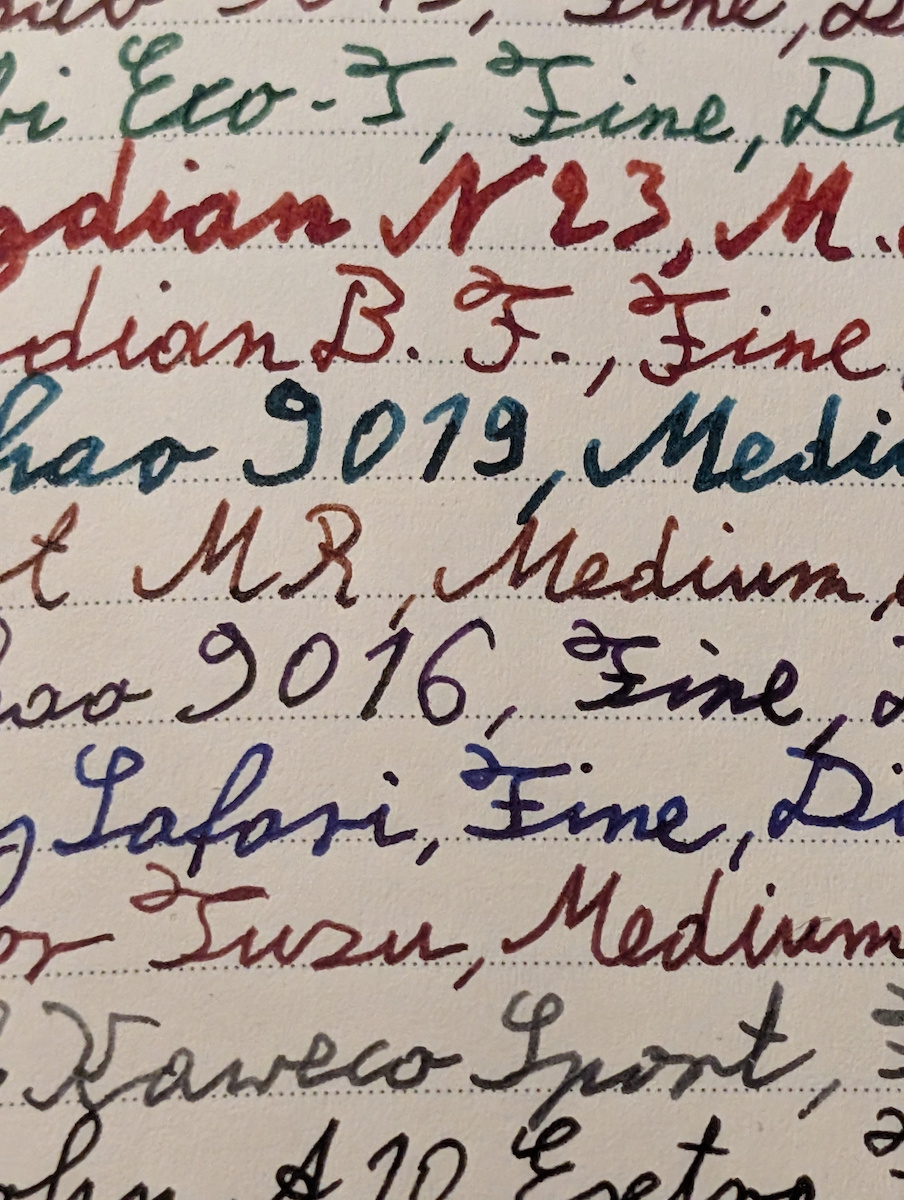 Fine,
Eco-T, Fine, Di
gdian N23, M.
dian B. F., Fine
hao 9019, Mediu
t MR, Medium,
hao 9016, Fine,
y Safari, Fine, Di
or Tuzu, Medium
Kaweco Sport,
ohn A10 Extra